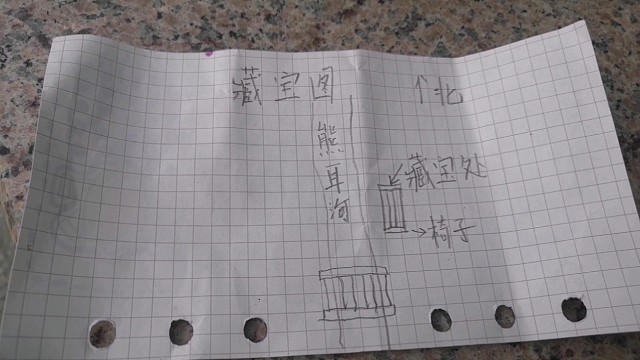 藏宝图
个北
熊耳河
藏宝处
椅子